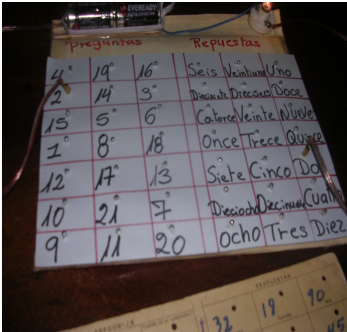 EVEREADY
Preguntas Repuestas
4 19 16 Seis Veintiuno Uno
2 14 3 Diecisiete Dieciseis Doce
15 5 6 Catorce Veinte Nueve
1 8 18 Once Trece Quince
12 17 13 Siete Cinco Do
10 21 7 Dieciocho Diecinueve Cuat
9 11 20 Ocho Tres Diez
32 18 90
45